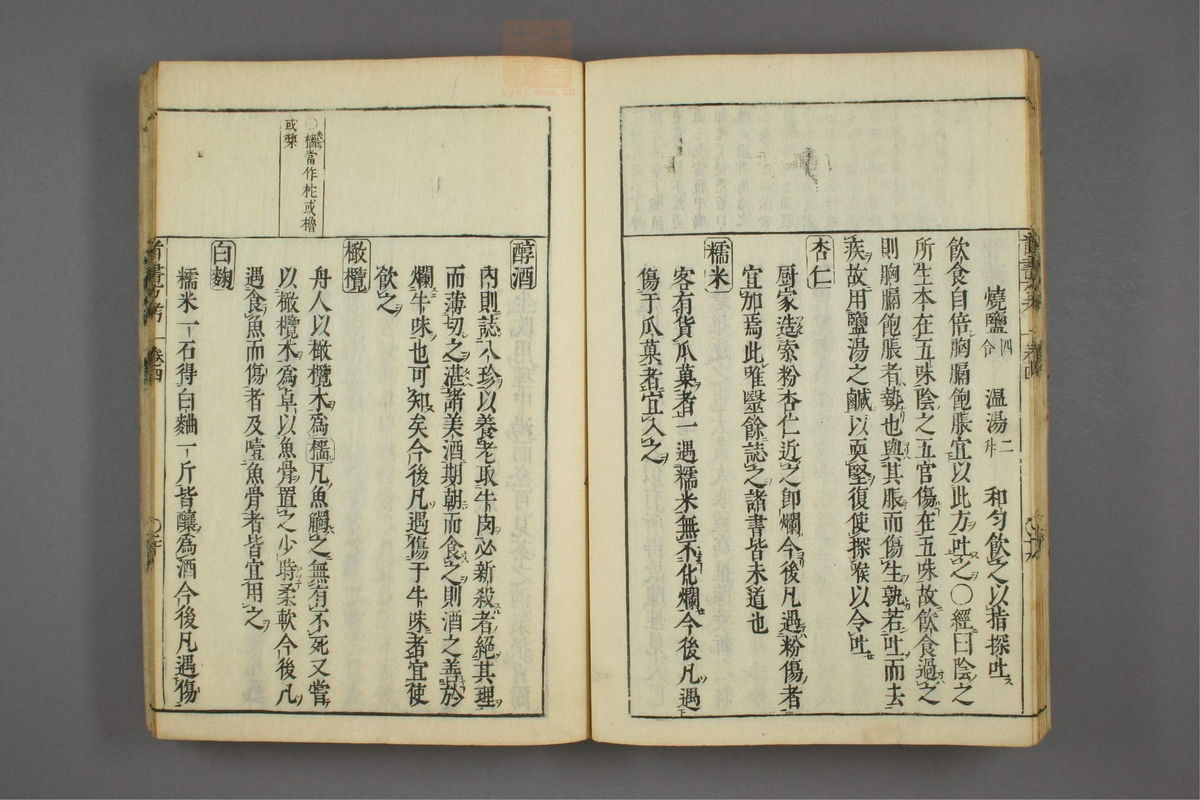 燒鹽四合 溫湯二升 和勻飲之以指探吐
飲食自倍胸膈飽脹宜以此方吐之〇經曰陰之
所生本在五味陰之五官傷在五味故飲食過之
則胸膈飽脹者勢也與其脹而傷生孰若吐而去
疾故用鹽湯之鹹以耎堅復使探喉以令吐
杏仁
厨家造索粉杏仁近之卽爛今後凡遇粉傷者
宜加焉此唯毉餘誌之諸書皆未道也
糯米
客有貨瓜菓者一遇糯米無不化爛今後凡遇
傷于瓜菓者宜入之
醇酒
內則誌八珍以養老取牛肉必新殺者絕其理
而薄切之湛諸美酒期朝而食之則酒之善於
爛牛味也可知矣今後凡遇傷于牛味者宜使
飲之
橄欖
舟人以橄欖木爲𣛴凡魚觸之無有不死又嘗
以橄欖木爲卓以魚骨置之少時柔軟今後凡
遇食魚而傷者及噎魚骨者皆宜用之
白麴
糯米一石得白麯一斤皆釀爲酒今後凡遇傷
當作柁或櫓
或槳
卷四